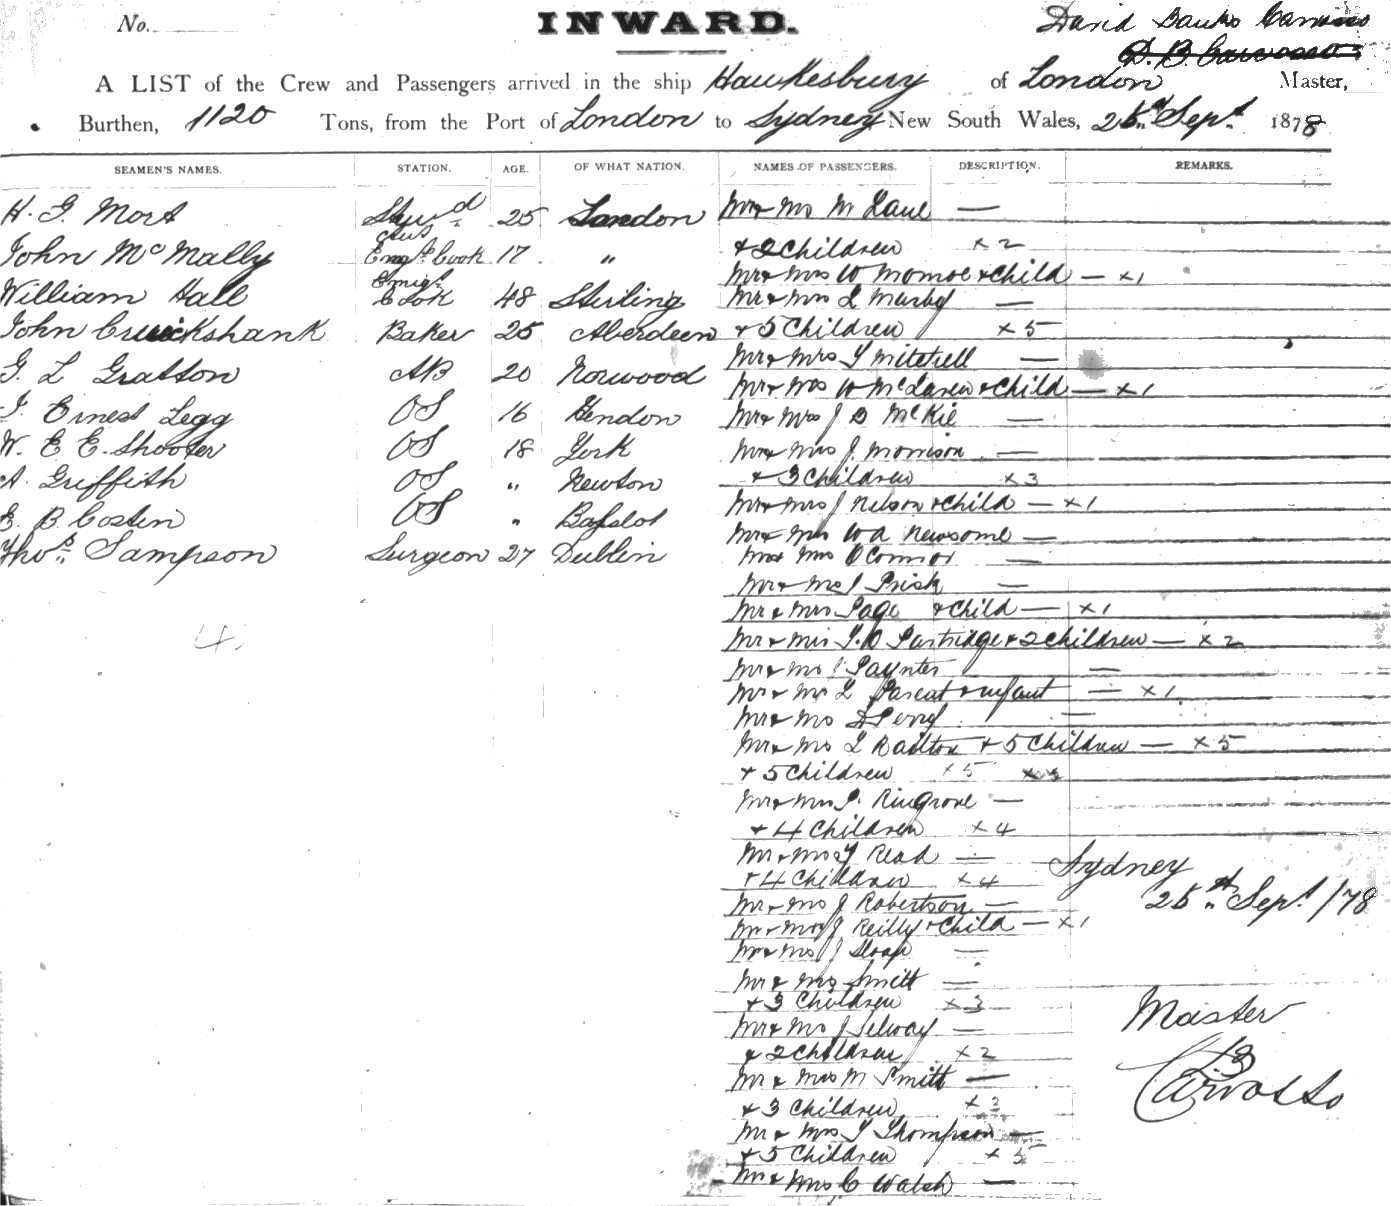 No. INWARD. David Banks Carvosso
D. B. Carvosso
A LIST of the Crew and Passengers arrived in the ship Hawkesbury of London Master,
Burthen, 1120 Tons, from the Port of London to Sydney New South Wales, 25th Sept 1878
SEAMEN'S NAMES. STATION. AGE. OF WHAT NATION. NAMES OF PASSENGERS. DESCRIPTION. REMARKS.
H. G. Mort Stewd 25 London Mr & Mrs M Lane —
& 2 Children x 2
John McMally Cook 17 "
Mr & Mrs W Monroe & Child — x 1
William Hall Emigt Cook 48 Stirling Mr & Mrs —
John Cruickshank Baker 25 Aberdeen & 5 Children x 5
Mr & Mrs T Mitchell —
G. L Gratton AB 20 Norwood Mr & Mrs W McLaren & Child — x 1
J. Ernest Legg OS 16 Hendon Mr & Mrs J D McKie —
W. E E. Shooter OS 18 York Mr & Mrs J. Morrison —
A. Griffith OS " Newton & 3 Children x 3
Mr & Mrs J Nelson & Child — x 1
E. B. Costen OS "
Mr & Mrs W A Newsome —
Thos Sampson Surgeon 27 Dublin Mr & Mrs O'Connor —
Mr & Mrs J Prisk —
Mr & Mrs Page & Child — x 1
Mr & Mrs T. D Partridge & 2 Children — x 2
4.
Mr & Mrs J Paynter —
Mr & Mrs L & infant — x 1
Mr & Mrs D Perry —
Mr & Mrs L Railton & 5 Children — x 5
& 5 Children x 5
Mr & Mrs J. Ringrove —
& 4 Children x 4
Mr & Mrs T Read — Sydney
& 4 Children x 4
Mr & Mrs J Robertson — 25th Sept /78
Mr & Mrs J Reilly & Child — x 1
Mr & Mrs J Sloap —
Mr & Mrs Smith —
& 3 Children x 3
Mr & Mrs J Selway — Master
& 2 Children x 2
Mr & Mrs M Smith — D B Carvosso
& 3 Children x 3
Mr & Mrs T Thompson —
& 5 Children x 5
Mr & Mrs C Walsh —